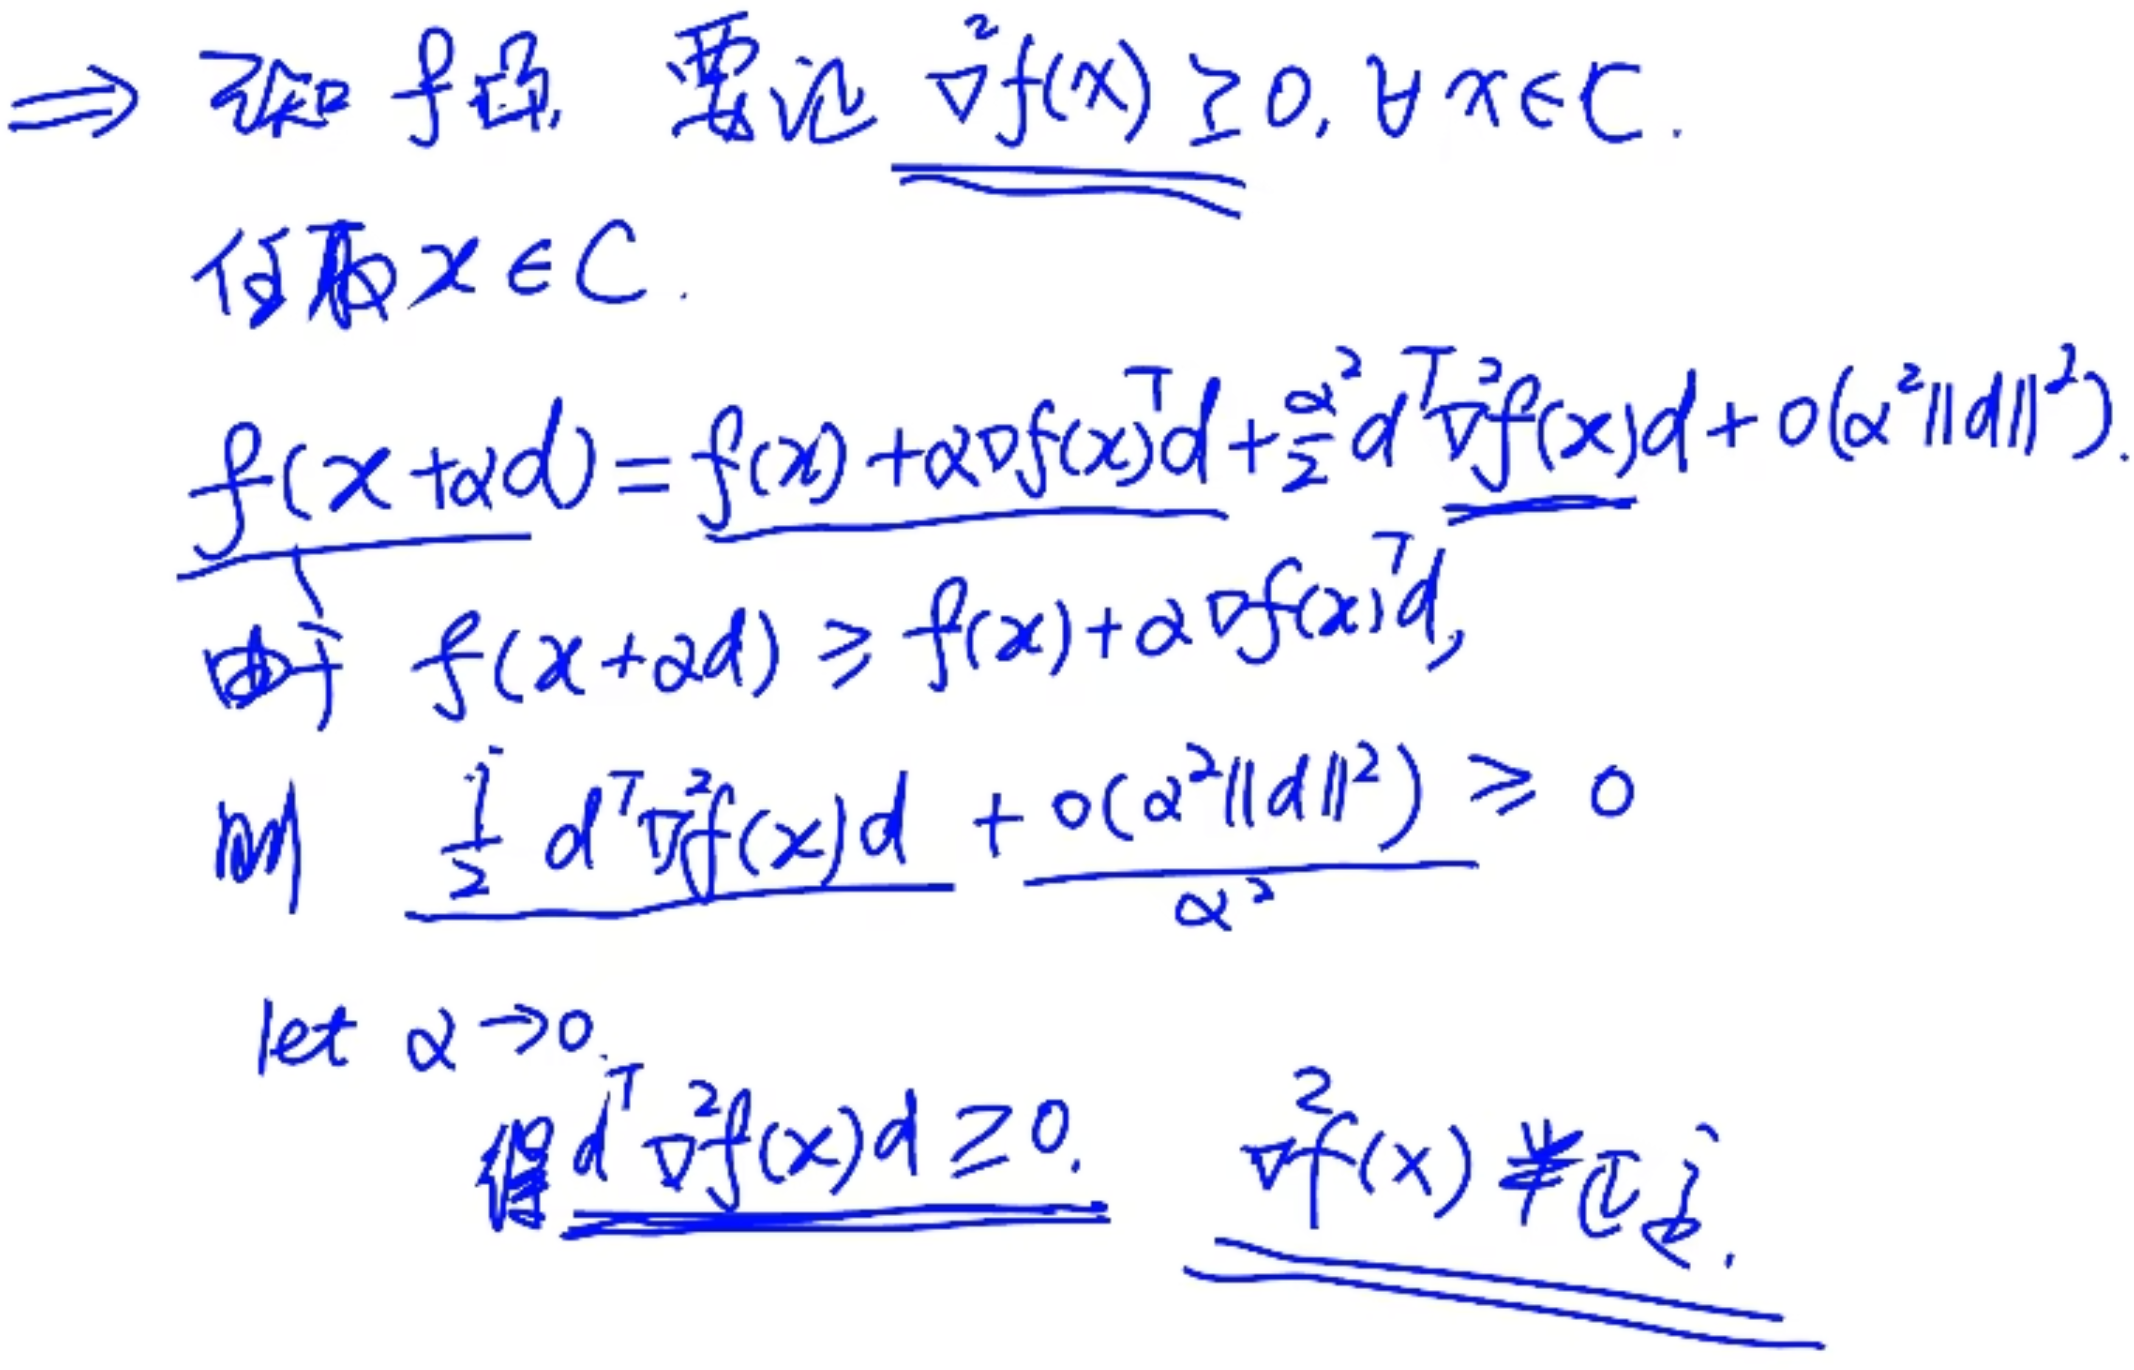 ⇒ 已知 f凸, 要证 ∇²f(x) ≥ 0, ∀ x∈C.
任取 x∈C.
f(x+αd) = f(x) + α∇f(x)ᵀd + α²/2 dᵀ∇²f(x)d + o(α²‖d‖²).
由于 f(x+αd) ≥ f(x) + α∇f(x)ᵀd,
则 1/2 dᵀ∇²f(x)d + o(α²‖d‖²)/α² ≥ 0
let α→0.
得 dᵀ∇²f(x)d ≥ 0. ∇²f(x) 半正定.